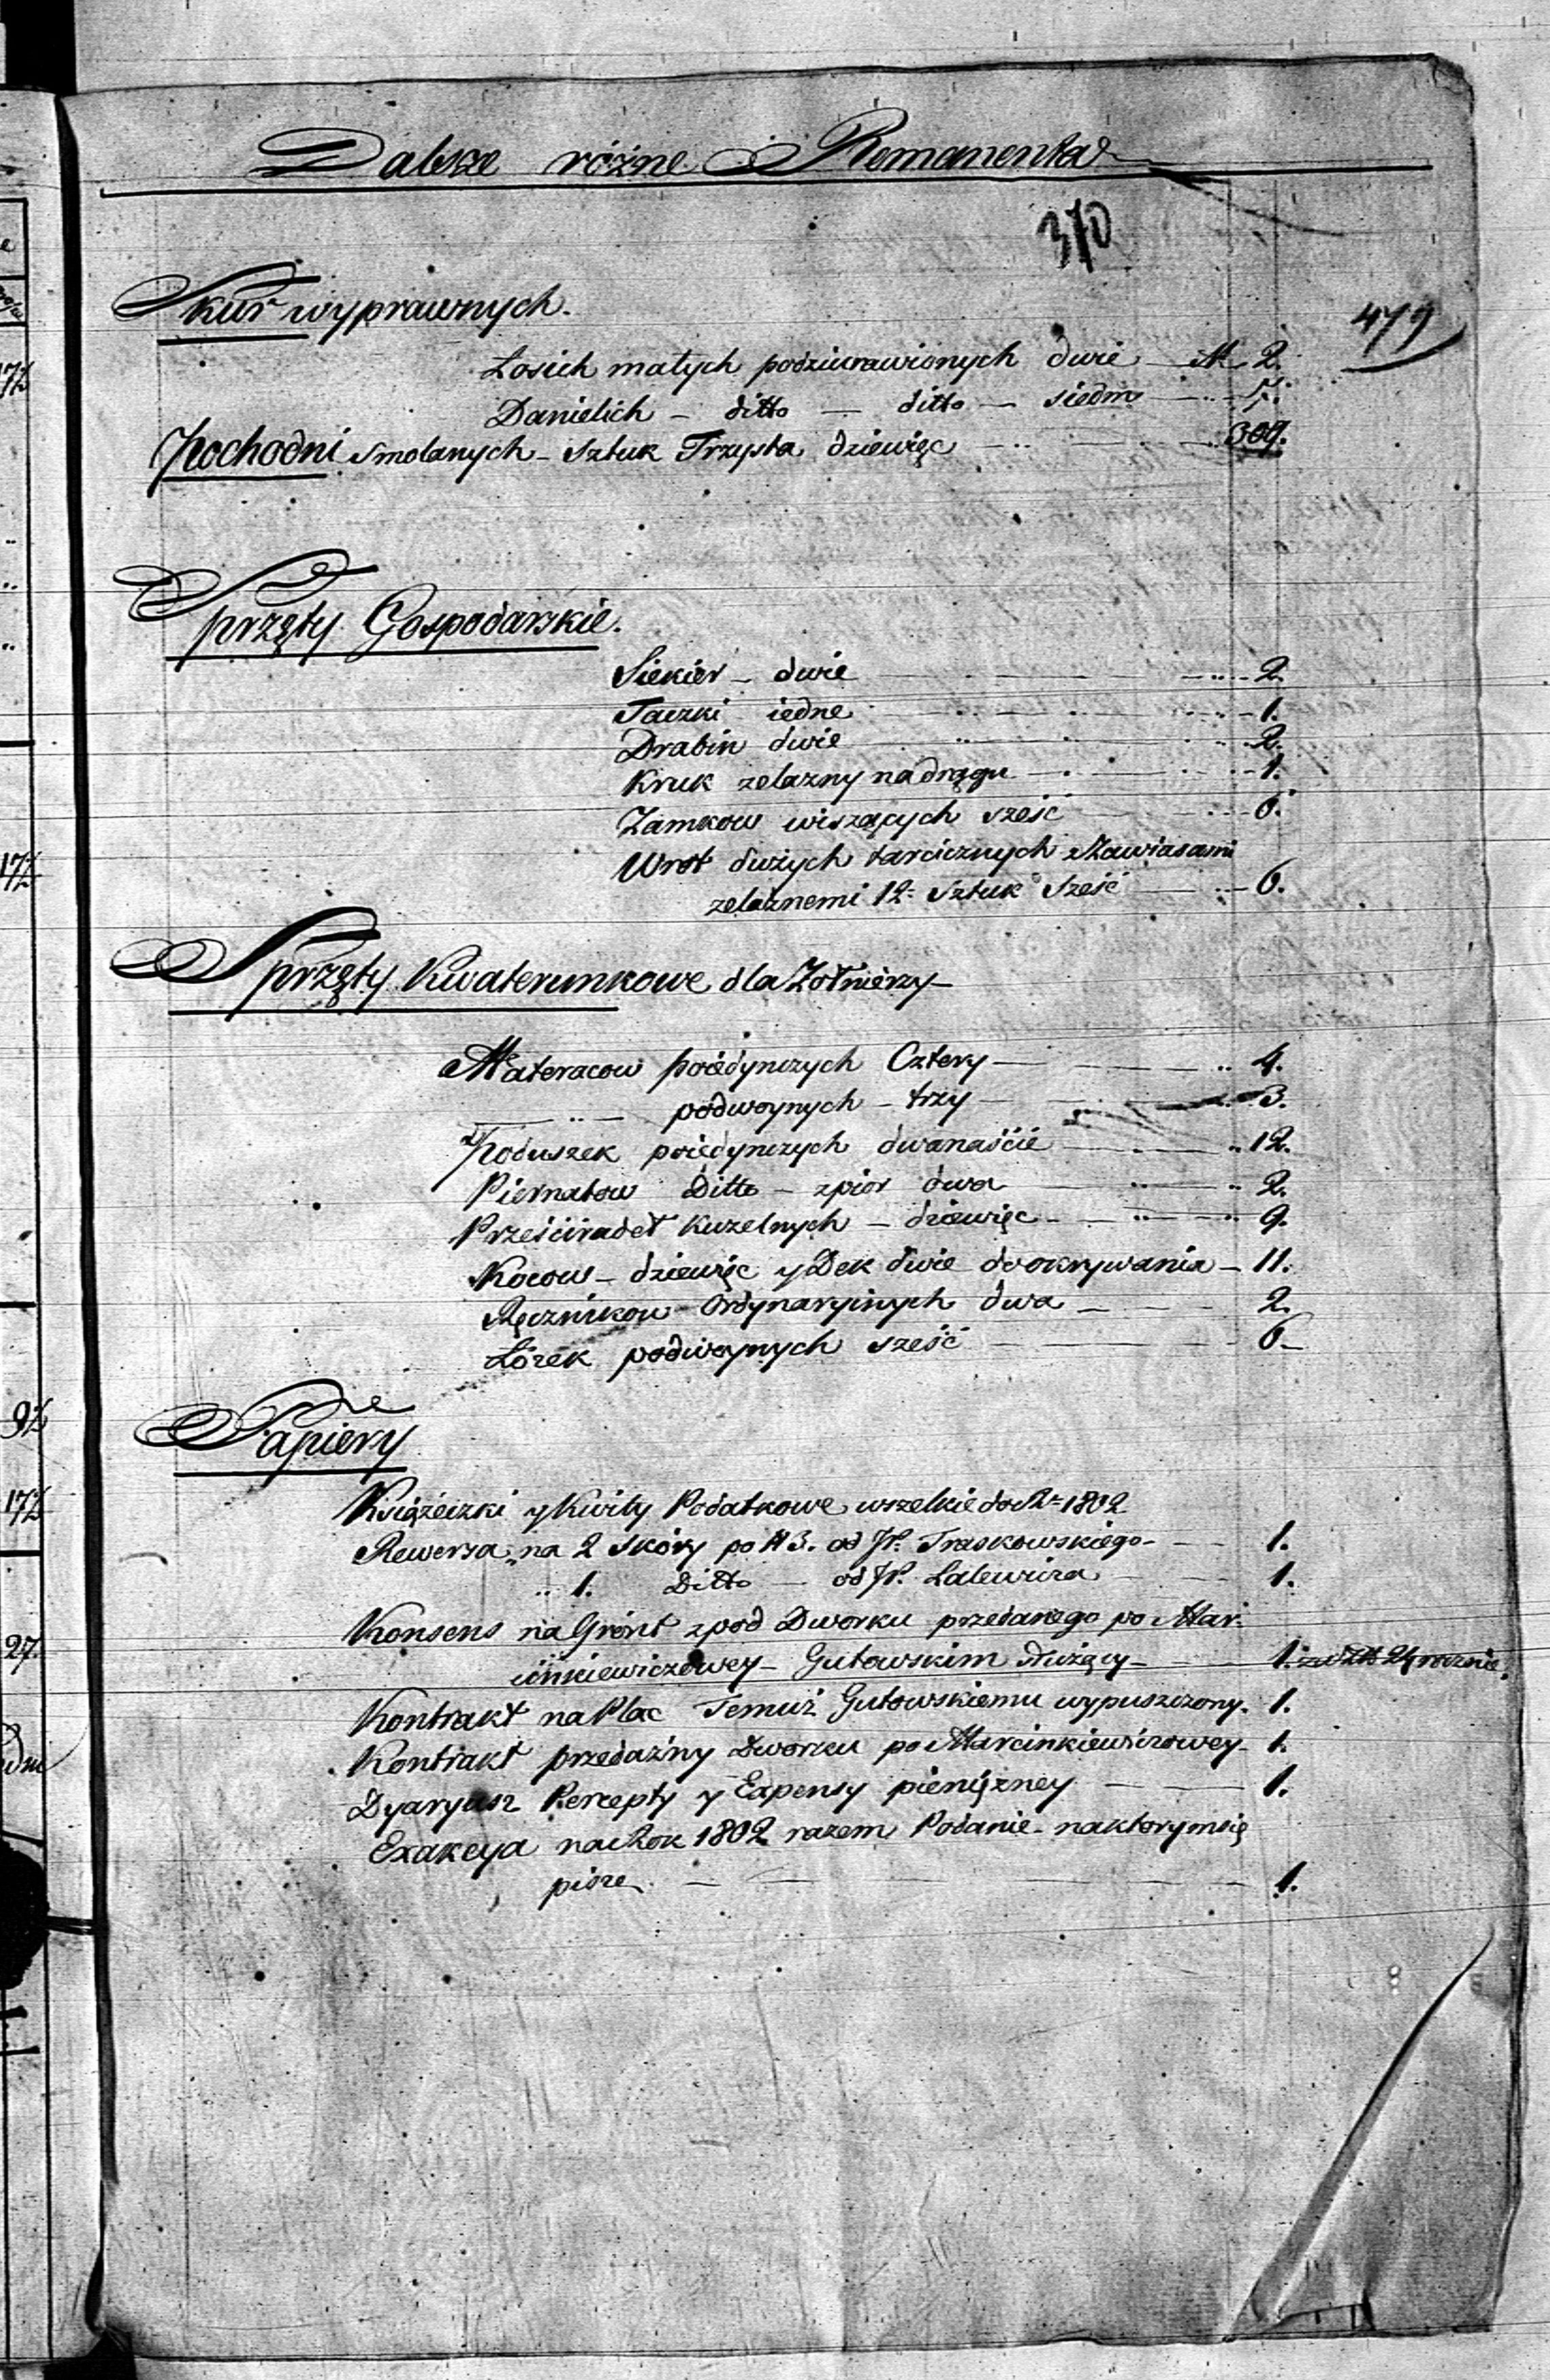 Dalsze różne Remanenta
370
Skur wyprawnych.
479
Łosich małych podziurawionych dwie — № 2.
Danielich — ditto — ditto — siedm — 7.
Pochodni smolanych — sztuk Trzysta dziewięc — 309.
Sprzęty Gospodarskie.
Siekier — dwie — 2.
Taczki iedne — 1.
Drabin dwie — 2.
Kruk zelazny na drągu — 1.
Zamkow wiszących sześć — 6.
Wrot dużych tarcicznych z Zawiasami
zelaznemi 12. Sztuk Sześć — 6.
Sprzęty Kwaterunkowe dla Żołnierzy —
Materacow poiedynczych Cztery — 4.
— „ — podwoynych — trzy — 3.
Poduszek poiedynczych dwanaście — 12.
Piernatow Ditto — z pior dwa — 2.
Prześciradeł Kuzelnych — dziewięc — 9.
Kocow — dziewięc y Dek dwie do okrywania — 11.
Ręcznikow Ordynaryinych dwa — 2.
Łózek podwoynych sześć — 6 —
Papiery
Książeczki y Kwity Podatkowe wszelkie do R. 1802
Rewersa „ na 2 Skóry po # 3. od JP. Traskowskiego — 1.
„ 1. Ditto — od JP. Lalewicza — 1.
Konsens na Grónt z pod Dworku przedanego po Mar-
cinkiewiczowey — Gutowskim służący — 1. 24 rocznie.
Kontrakt na Plac Temuż Gutowskiemu wypuszczony. 1.
Kontrakt przedażny Dworku po Marcinkiewiczowey — 1.
Dyaryusz Percepty y Expensy pieniężney — 1.
Exakcya na Rok 1802 razem Podanie — na ktorym się
pisze — 1.
17½
17½
9½
17½
27.